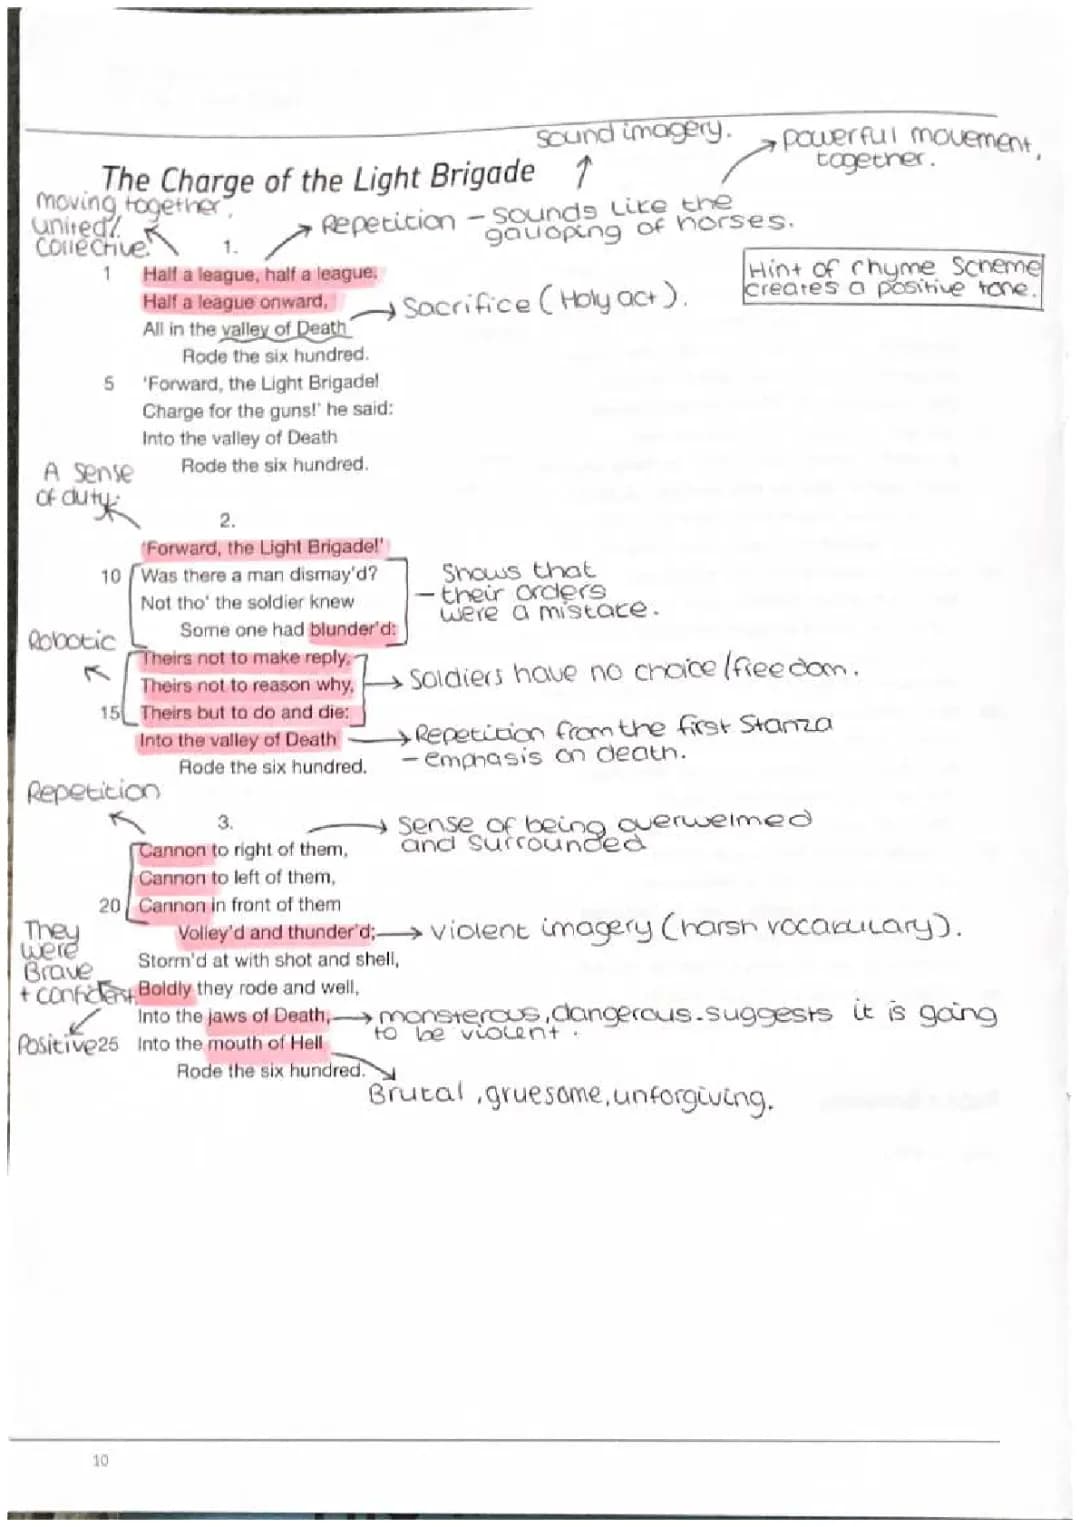 sound imagery.
powerful movement,
together.
The Charge of the Light Brigade
moving together,
united/
collective.
Repetition - sounds like the
galloping of horses.
Hint of rhyme scheme
creates a positive tone.
1.
1 Half a league, half a league,
Half a league onward,
Sacrifice (Holy act).
All in the valley of Death
Rode the six hundred.
5 'Forward, the Light Brigade!
Charge for the guns!' he said:
Into the valley of Death
Rode the six hundred.
A sense
of duty.
2.
'Forward, the Light Brigade!'
10 Was there a man dismay'd?
Not tho' the soldier knew
Some one had blunder'd:
Shows that
- their orders
were a mistake.
Robotic
Theirs not to make reply,
Theirs not to reason why,
15 Theirs but to do and die:
Soldiers have no choice/freedom.
Into the valley of Death
Rode the six hundred.
Repetition from the first Stanza
- emphasis on death.
Repetition
3.
Sense of being overwelmed
and surrounded
Cannon to right of them,
Cannon to left of them,
20 Cannon in front of them
Volley'd and thunder'd;
violent imagery (harsh vocabulary).
They
were
Brave
+ confident
Positive
Storm'd at with shot and shell,
Boldly they rode and well,
Into the jaws of Death,
monsterous, dangerous. suggests it is going
to be violent.
25 Into the mouth of Hell
Rode the six hundred.
Brutal, gruesome, unforgiving.
10